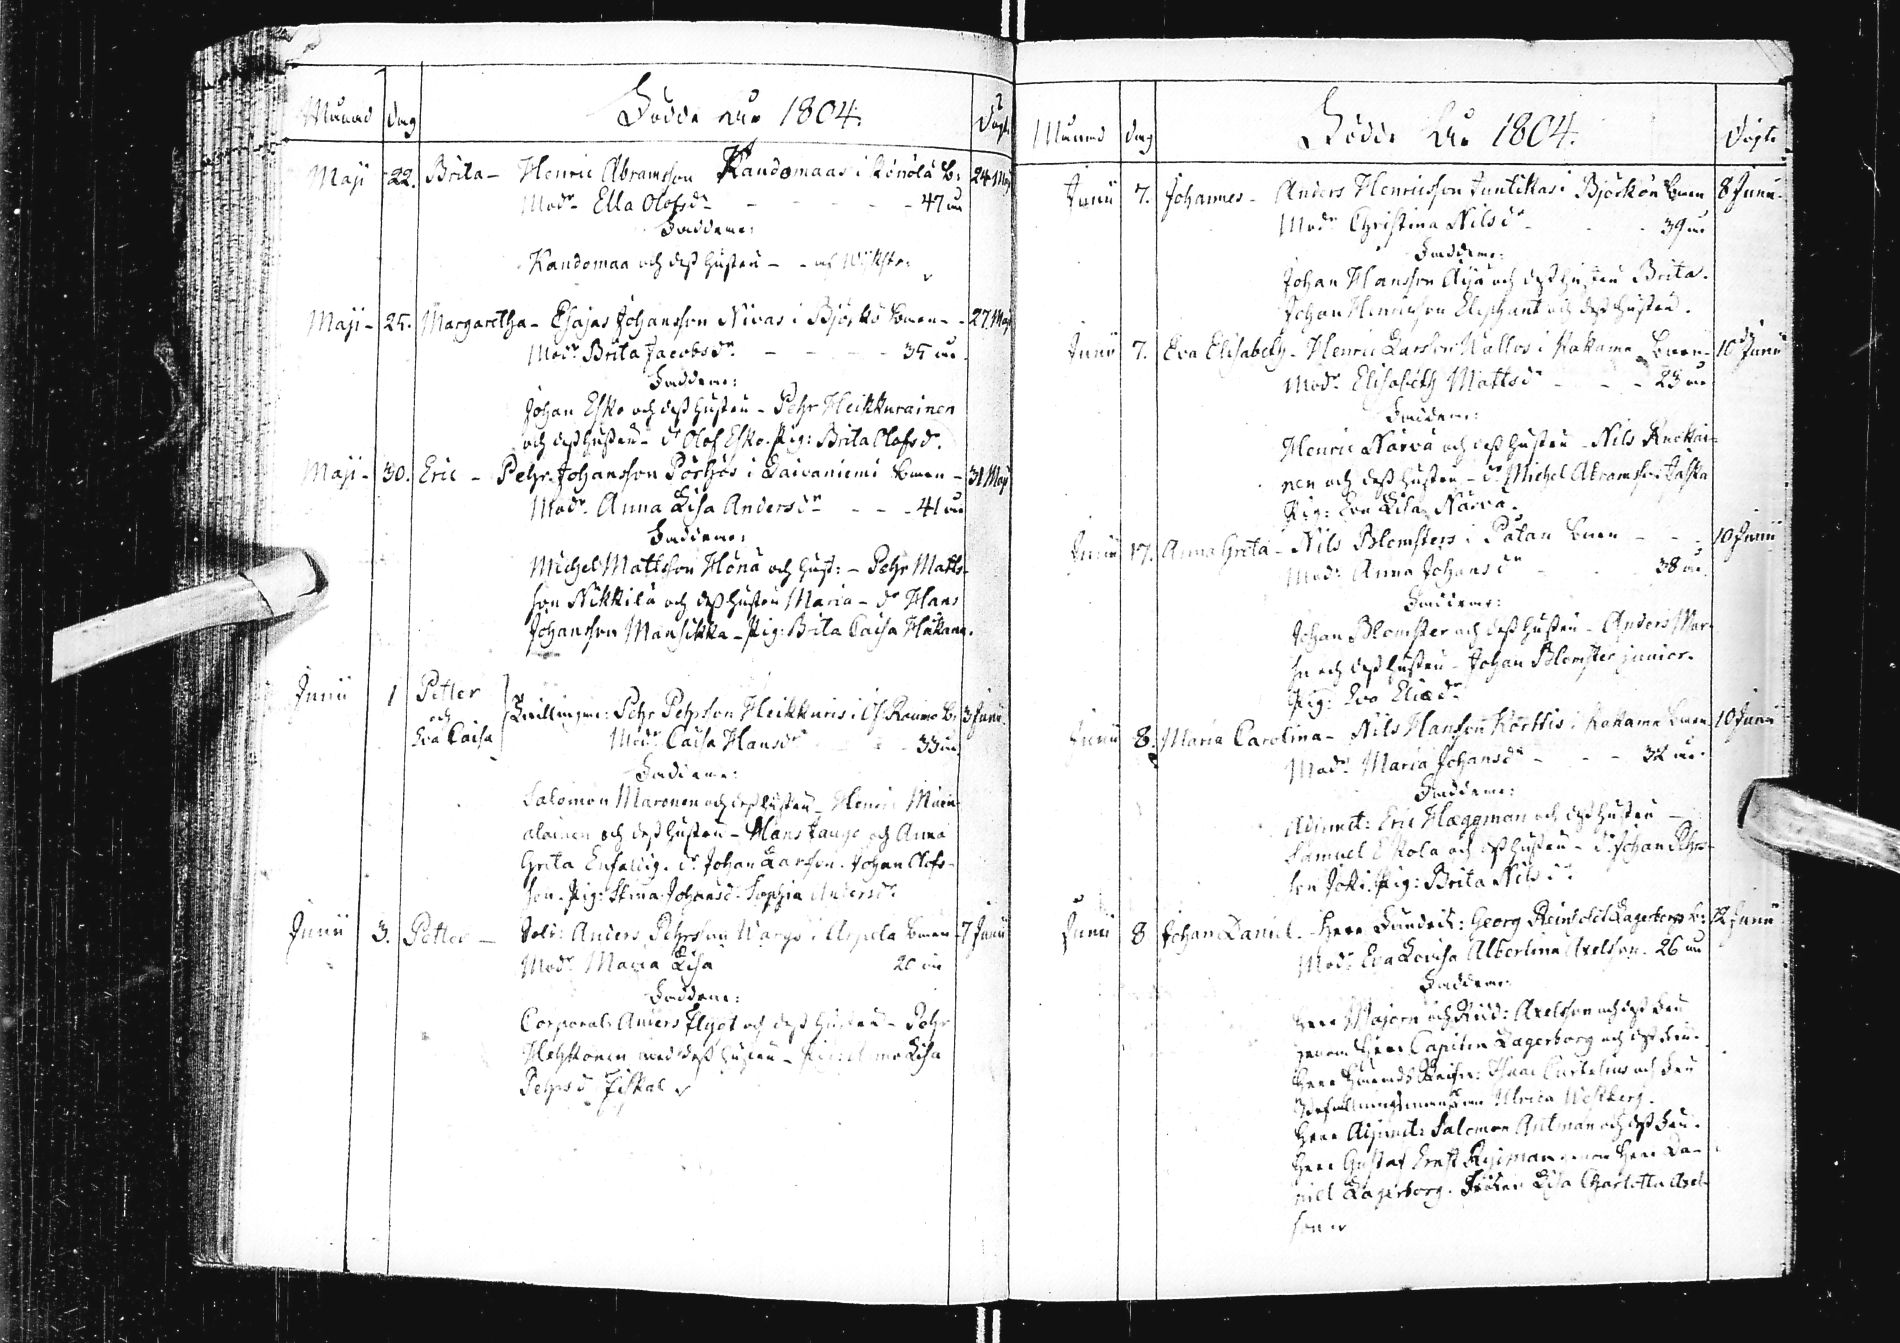 Månad dag Födde År 1804. Döpte
Maji 22. Brita – Henric Abramsson Kandomaas i Könölä B: 24 Maj
Modr Ella Olofsdr – – – – 47 år
Faddrar:
Kandomaa och dess hustru –
Maji – 25. Margaretha – Esajas Johansson Nivas i Björkö Bonen – 27 Maj
Modr Brita Jacobsdr – – – – 35 år
Faddrar:
Johan Esko och dess hustru – Pehr Heikkurainen
och dess hustru – dr Olof Esko. Pig: Brita Olofsdr.
Maji – 30. Eric – Pehr Johansson Pörhös i Laivaniemi Bonen – 31 Maj
Modr Anna Lisa Andersdr – – 41 år
Faddrar:
Michel Mattsson Hönä och hust: – Pehr Matts-
son Nikkilä och dess hustru Maria – dr Hans
Johansson Mansikka – Pig: Brita Caisa Håkana.
Junii 1 Petter
och
Eva Caisa
Tvillingar: Pehr Pehrsson Heikkuris i Raumo B: 3 Junii
Modr Caisa Hansdr 33 år
Faddrar:
Salomon Maronen och dess hustru – Henric
alainen och dess hustru – Hans Jaugo och Anna
Greta Enfaldig. dr Johan Larsson. Johan Olofs-
son. Pig: Stina Johansdr. Sophia Andersdr
Junii 3. Petter – Sold: Anders Pehrsson Wargs i Arpela Bonen – 7 Junii
Modr Maria Lisa 20 år
Faddrar:
Corporal: Anders Flygt och dess hustru – Pehr
med dess hustru – Lisa
Pehrsdr Fiskal
Månad dag Födde År 1804. Döpte
Junii 7. Johannes – Anders Henricsson Juntikkas i Björkön Bonen 8 Junii
Modr Christina Nilsdr 39 år
Faddrar:
Johan Hansson Äijä och dess hustru Brita.
Johan Henricsson Elephant och dess hustru.
Junii 7. Eva Elisabeth – Henric Larsson Kallos i Kakama Bonen 10 Junii
Modr Elisabeth Mattsdr – – – 23 år
Faddrar:
Henric Närvä och dess hustru – Nils Knekkai-
nen och dess hustru – dr Michel Abramsson Jäskä
Pig: Eva Lisa Närvä.
Junii 17. Anna Greta – Nils Blomsters i Palan Bonen – – 10 Junii
Modr Anna Johansdr 38 år
Faddrar:
Johan Blomster och dess hustru – Anders
och dess hustru – Johan Blomster junior.
Pig: Eva Eliædr
Junii 8. Maria Carolina – Nils Hansson Körttis i Kakama Bonen 10 Junii
Modr Maria Johansdr – – – 32 år.
Faddrar:
Adjunct: Eric Hæggman och dess hustru –
Samuel Eskola och dess hustru – dr Johan Pehrs-
son Joki. Pig: Brita Nilsdr
Junii 8 Johan Daniel – Herr Georg Reinhold Lagerborgs B: 12 Junii
Modr Eva Lovisa Albertina Axelson. 26 år
Faddrar:
Herr Majoren och Ridd: Axelsson och dess Fru
genom Herr Capiten Lagerborg och dess Fru.
Herr Isaac Curtelius och Fru
Befallningsmanskan Ulrica Westberg.
Herr Adjunct: Salomon Antman och dess Fru.
Herr Gustaf Ernst genom Herr Da-
niel Lagerborg. Fröken Lisa Charlotta Axel-
son